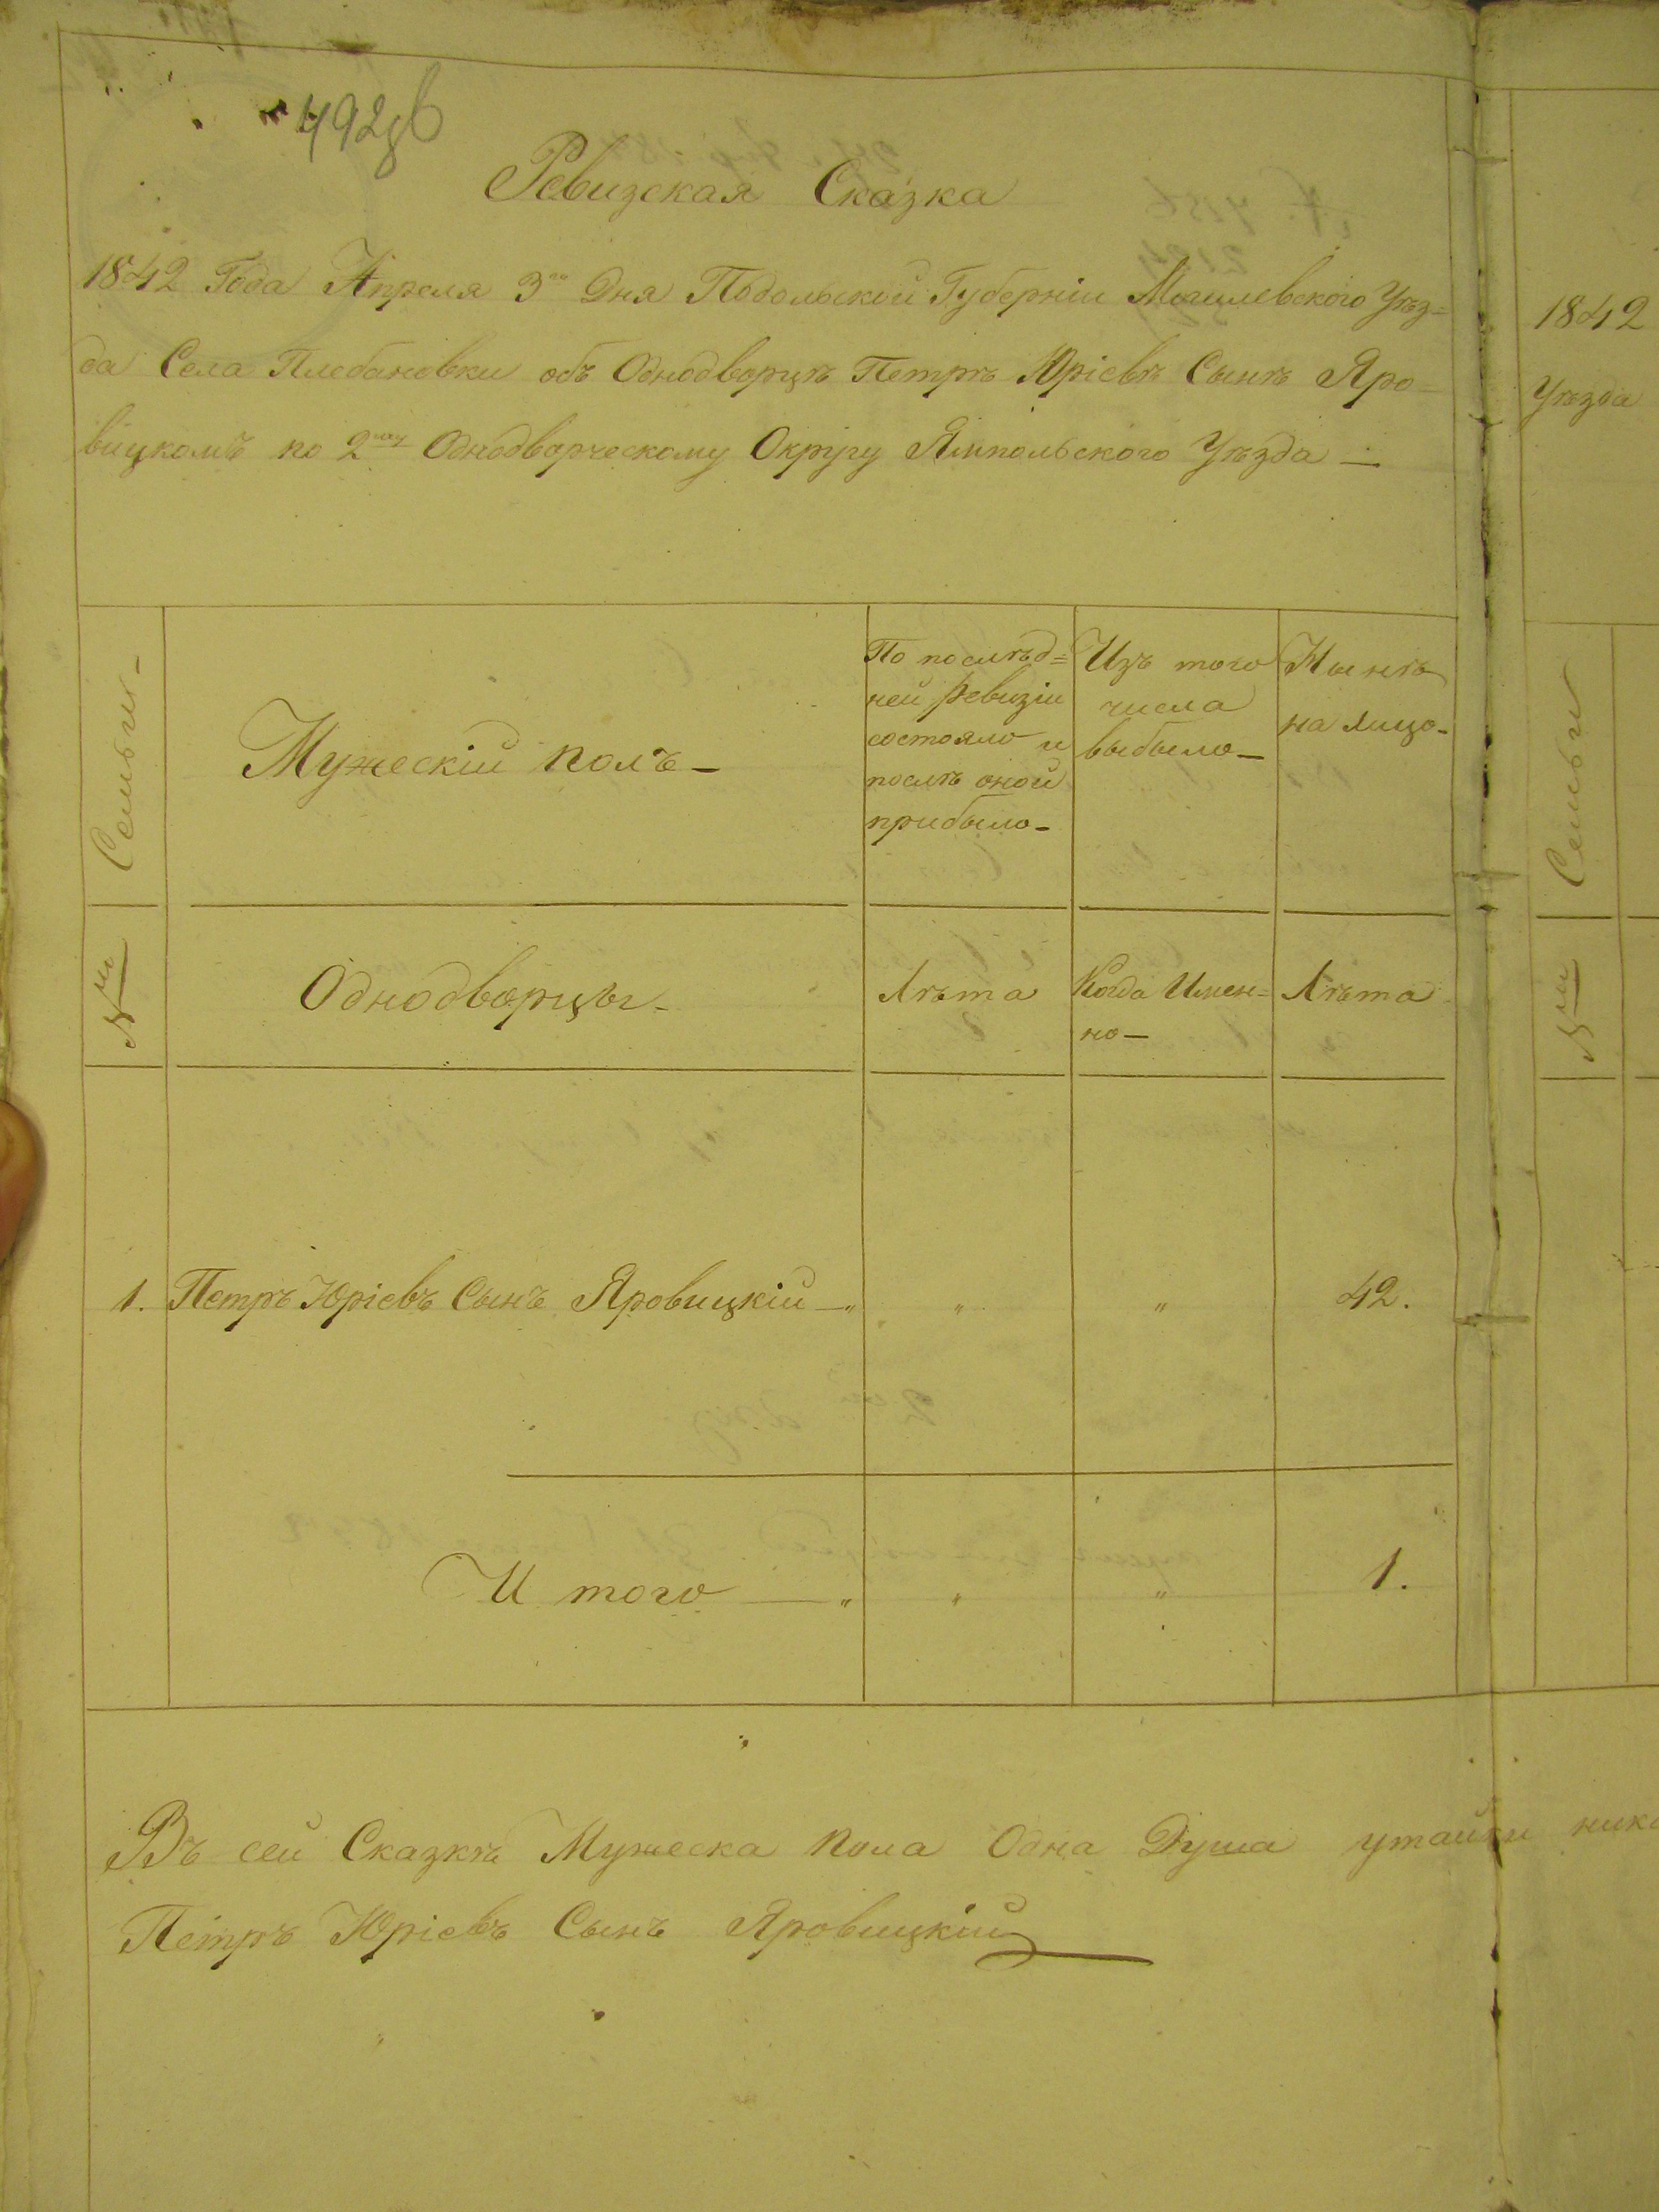 Ревизская Сказка
1842 Года Апреля 3го Дня Подольской Губерніи Могилевского Уѣз=
да Села Плебановки объ Однодворцѣ Петрѣ Юріевѣ Сынѣ Яро-
вицкомъ по 2му Однодворческому Округу Ямпольского Уѣзда —
Семьи-
Мужескій полъ-
По послѣд=
ней ревизіи
состояло и
послѣ оной
прибыло-
Изъ того
числа
выбыло-
Нынѣ
на лицо-
Nми
Однодворцы-
Лѣта
Когда Имен=
но-
Лѣта
1. Петръ Юріевъ Сынъ Яровицкій — " " " 42.
И того — " " " 1.
Въ сей Сказкѣ Мужеска пола Одна Душа утайки
Петръ Юріевъ Сынъ Яровицкій
1842
Уѣзда
Семьи
Nми